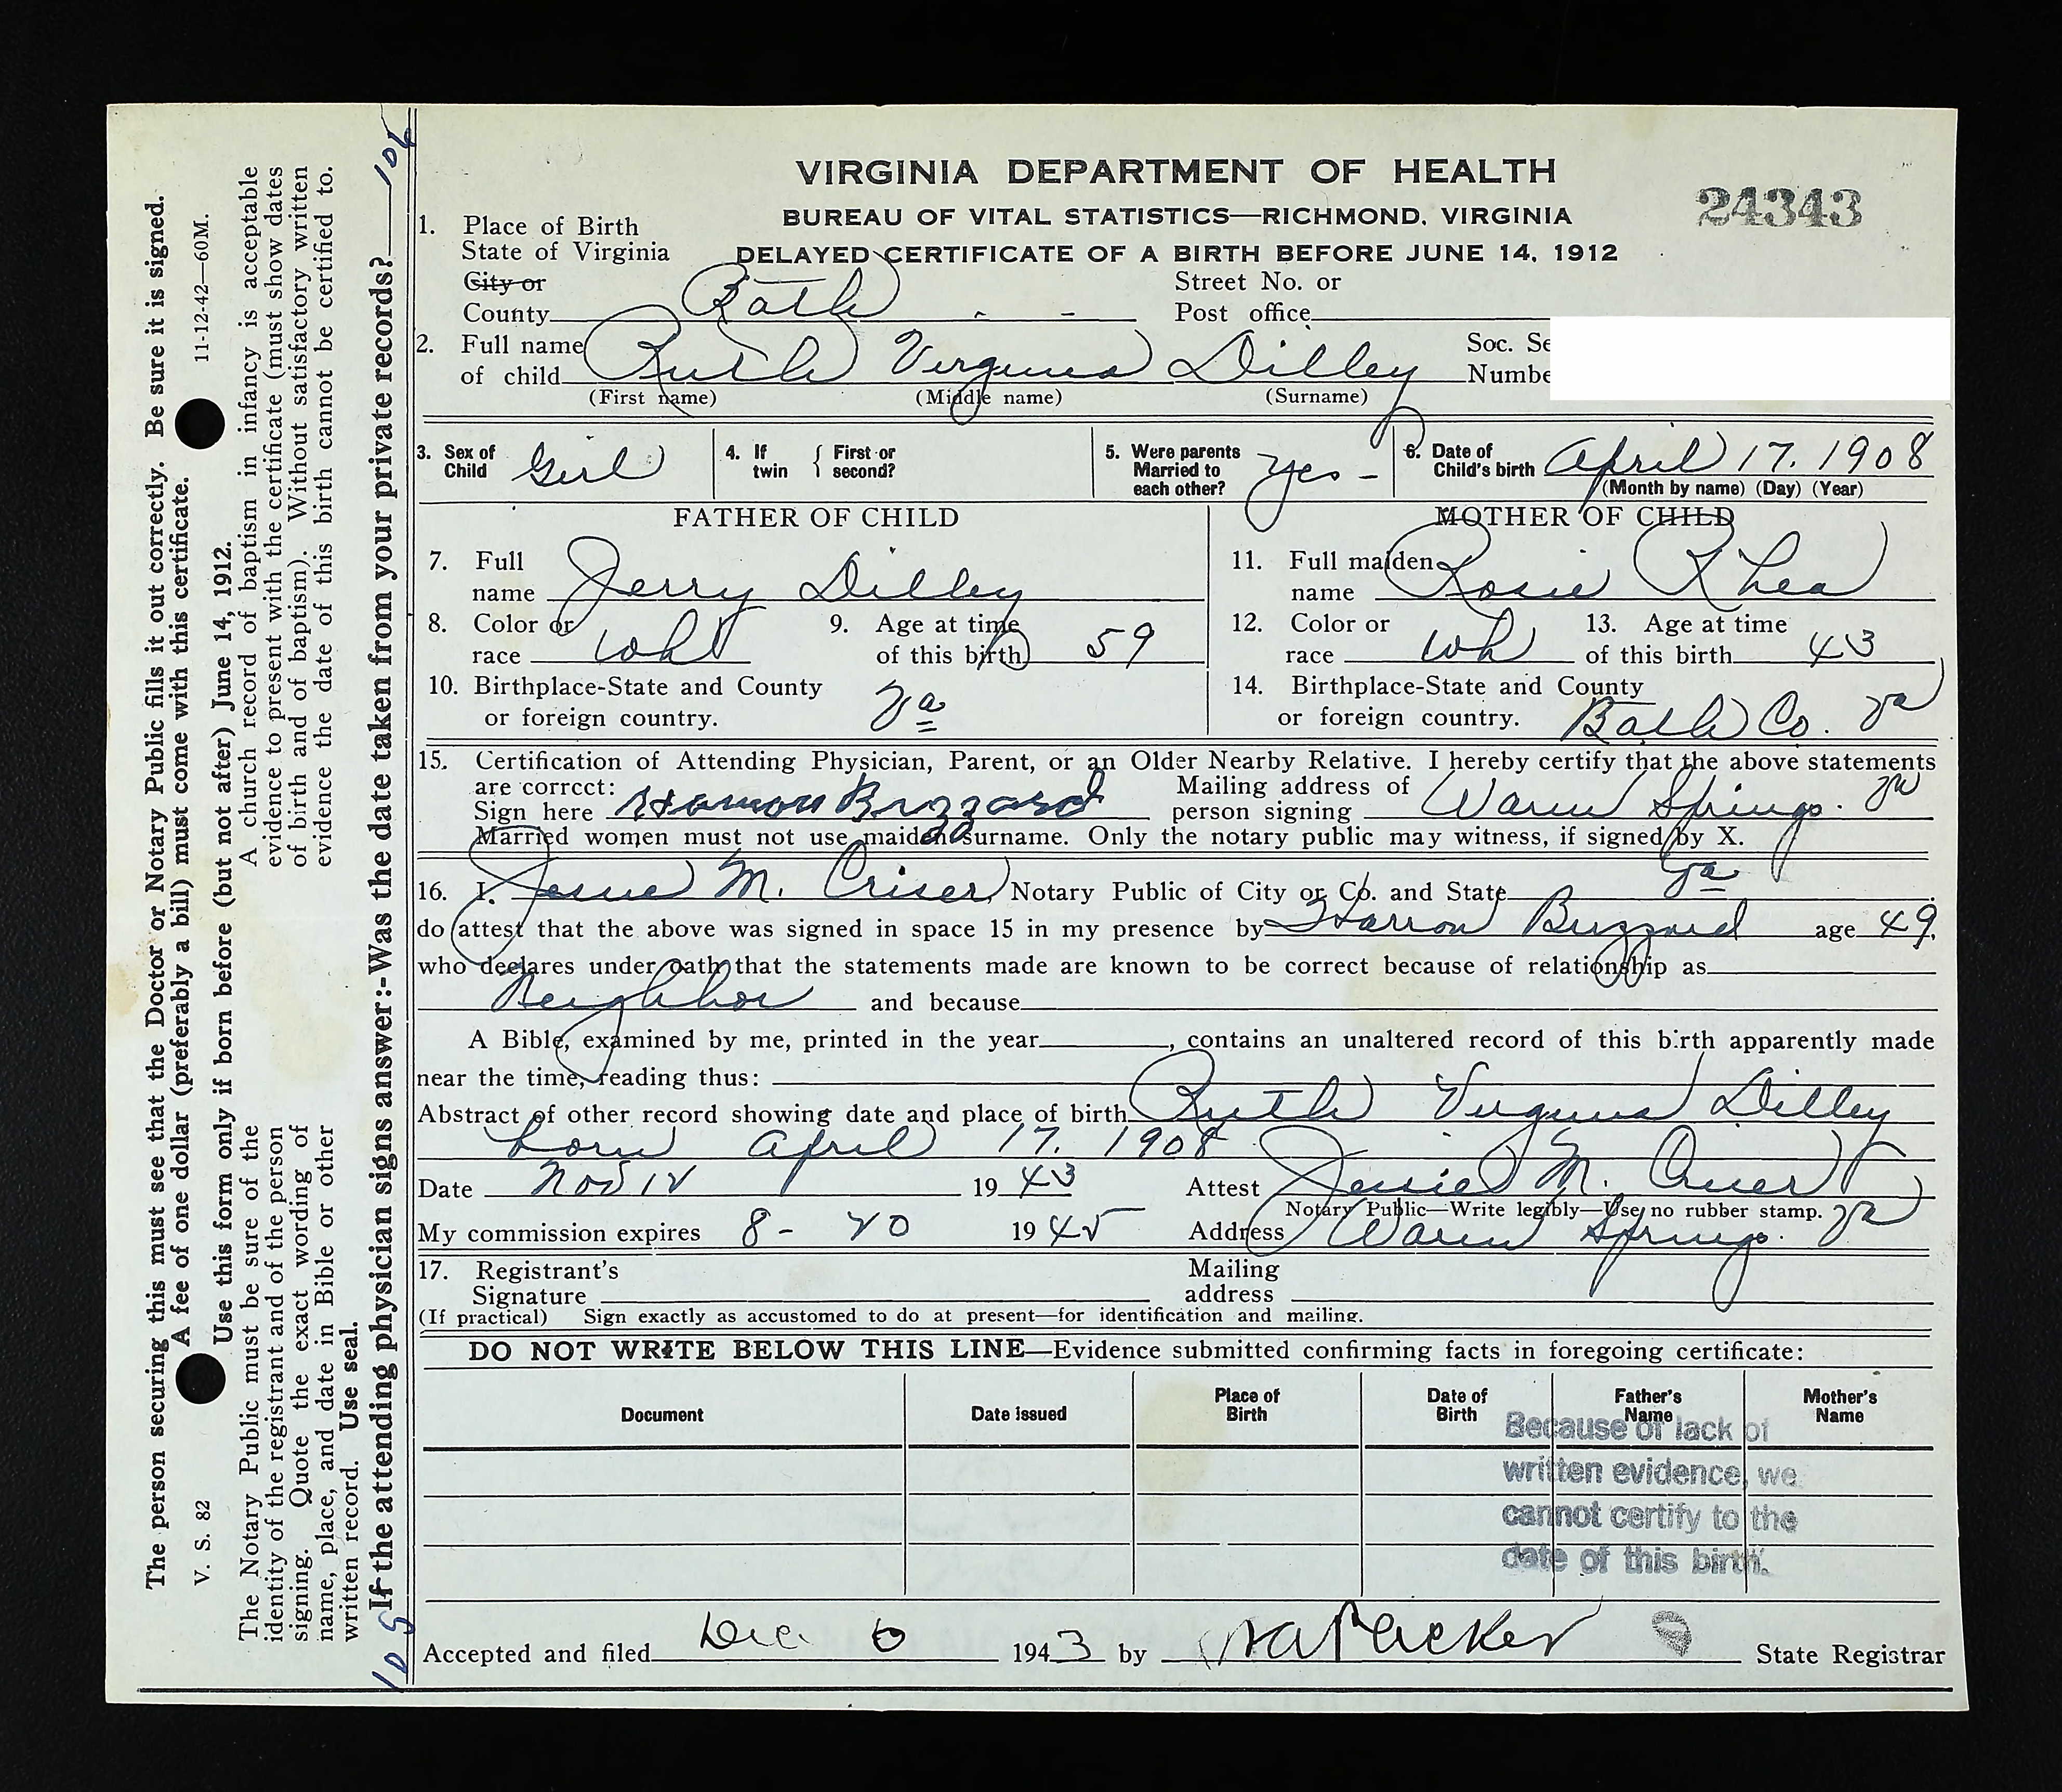 VIRGINIA DEPARTMENT OF HEALTH
BUREAU OF VITAL STATISTICS—RICHMOND, VIRGINIA
DELAYED CERTIFICATE OF A BIRTH BEFORE JUNE 14, 1912
24343
1. Place of Birth
State of Virginia
City or
County Bath - - Street No. or Post office
2. Full name of child Ruth Virginia Dilley Soc. Se
Numbe
(First name) (Middle name) (Surname)
3. Sex of Child Girl 4. If twin { First or second? 5. Were parents Married to each other? Yes - 6. Date of Child's birth April 17. 1908
(Month by name) (Day) (Year)
FATHER OF CHILD MOTHER OF CHILD
7. Full name Jerry Dilley 11. Full maiden name Rosie Rhea
8. Color or race wht 9. Age at time of this birth 59 12. Color or race Wh 13. Age at time of this birth 43
10. Birthplace-State and County or foreign country. Va 14. Birthplace-State and County or foreign country. Bath Co. Va
15. Certification of Attending Physician, Parent, or an Older Nearby Relative. I hereby certify that the above statements
are correct:
Sign here Buzzard Mailing address of person signing Warm Springs. Va
Married women must not use maiden surname. Only the notary public may witness, if signed by X.
16. I. Jessie M. Criser, Notary Public of City or Co. and State Va
do attest that the above was signed in space 15 in my presence by Buzzard age 49,
who declares under oath that the statements made are known to be correct because of relationship as
Neighbor and because
A Bible, examined by me, printed in the year , contains an unaltered record of this birth apparently made
near the time, reading thus:
Abstract of other record showing date and place of birth Ruth Virginia Dilley
born April 17. 1908
Date Nov 12 1943 Attest Jessie M. Criser
Notary Public—Write legibly—Use no rubber stamp.
My commission expires 8 - 20 1945 Address Warm Springs. Va
17. Registrant's Signature Mailing address
(If practical) Sign exactly as accustomed to do at present—for identification and mailing.
DO NOT WRITE BELOW THIS LINE—Evidence submitted confirming facts in foregoing certificate:
Document Date issued Place of Birth Date of Birth Father's Name Mother's Name
Because of lack of
written evidence, we
cannot certify to the
date of this birth.
Accepted and filed Dec 6 1943 by Plecker State Registrar
The person securing this must see that the Doctor or Notary Public fills it out correctly. Be sure it is signed.
A fee of one dollar (preferably a bill) must come with this certificate.
V. S. 82 11-12-42—60M.
Use this form only if born before (but not after) June 14, 1912.
The Notary Public must be sure of the
identity of the registrant and of the person
signing. Quote the exact wording of
name, place, and date in Bible or other
written record. Use seal.
A church record of baptism in infancy is acceptable
evidence to present with the certificate (must show dates
of birth and of baptism). Without satisfactory written
evidence the date of this birth cannot be certified to.
If the attending physician signs answer:-Was the date taken from your private records?